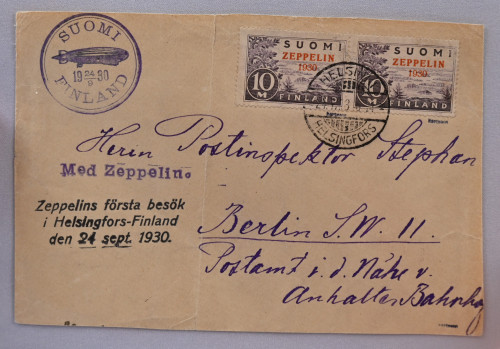 SUOMI
19 24 30
9
FINLAND
SUOMI
ZEPPELIN
1930.
10 M
FINLAND
SUOMI
ZEPPELIN
1930.
10 M
FINLAND
HELSINKI
HELSINGFORS
Herrn Postinspektor Stephan
Med Zeppelin.
Zeppelins första besök
i Helsingfors-Finland
den 24 sept. 1930.
Berlin S.W. 11.
Postamt i. d. Nähe v.
Anhalter Bahnhof